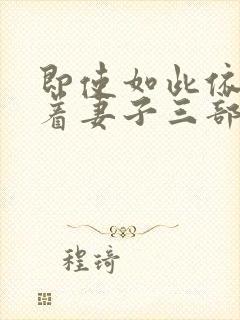 即使如此依
着妻子三部
程琦